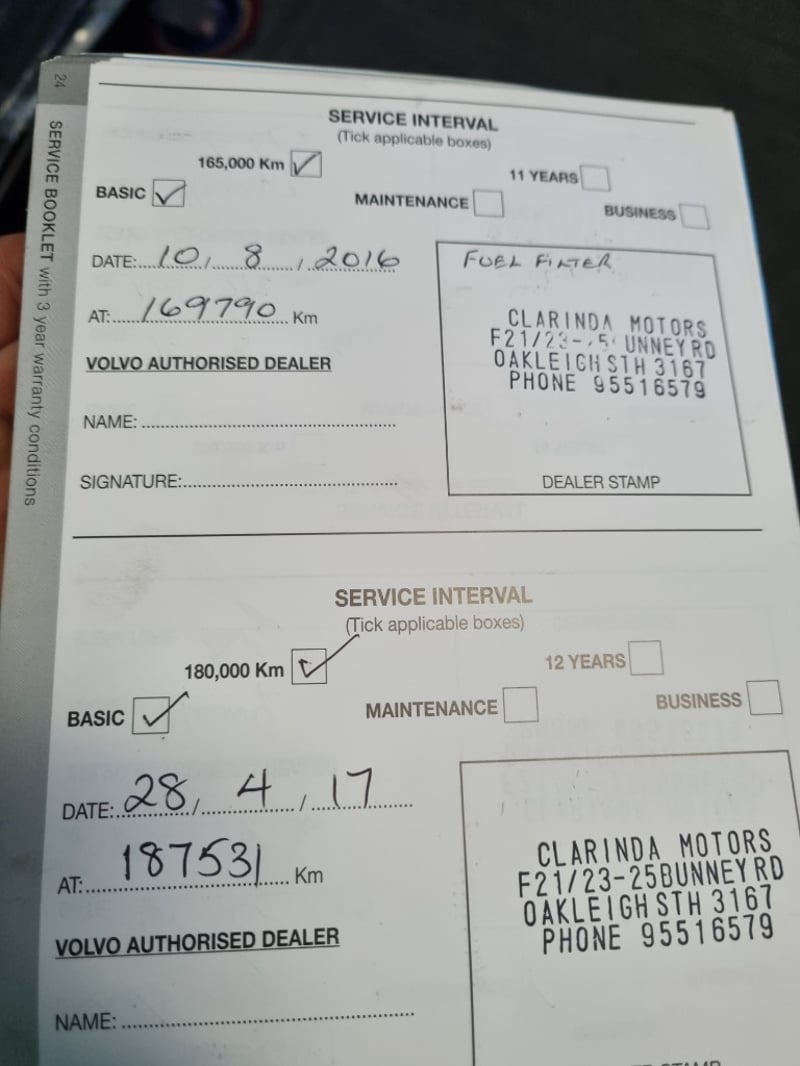 24
SERVICE BOOKLET with 3 year warranty conditions
SERVICE INTERVAL
(Tick applicable boxes)
165,000 Km
11 YEARS
BASIC
MAINTENANCE
BUSINESS
DATE: 10 / 8 / 2016
AT: 169790 Km
VOLVO AUTHORISED DEALER
NAME:
SIGNATURE:
FUEL FILTER
CLARINDA MOTORS
F21/23- 5 UNNEY RD
OAKLEIGH STH 3167
PHONE 95516579
DEALER STAMP
SERVICE INTERVAL
(Tick applicable boxes)
180,000 Km
12 YEARS
BASIC
MAINTENANCE
BUSINESS
DATE: 28 / 4 / 17
AT: 187531 Km
VOLVO AUTHORISED DEALER
NAME:
CLARINDA MOTORS
F21/23-25BUNNEY RD
OAKLEIGH STH 3167
PHONE 95516579